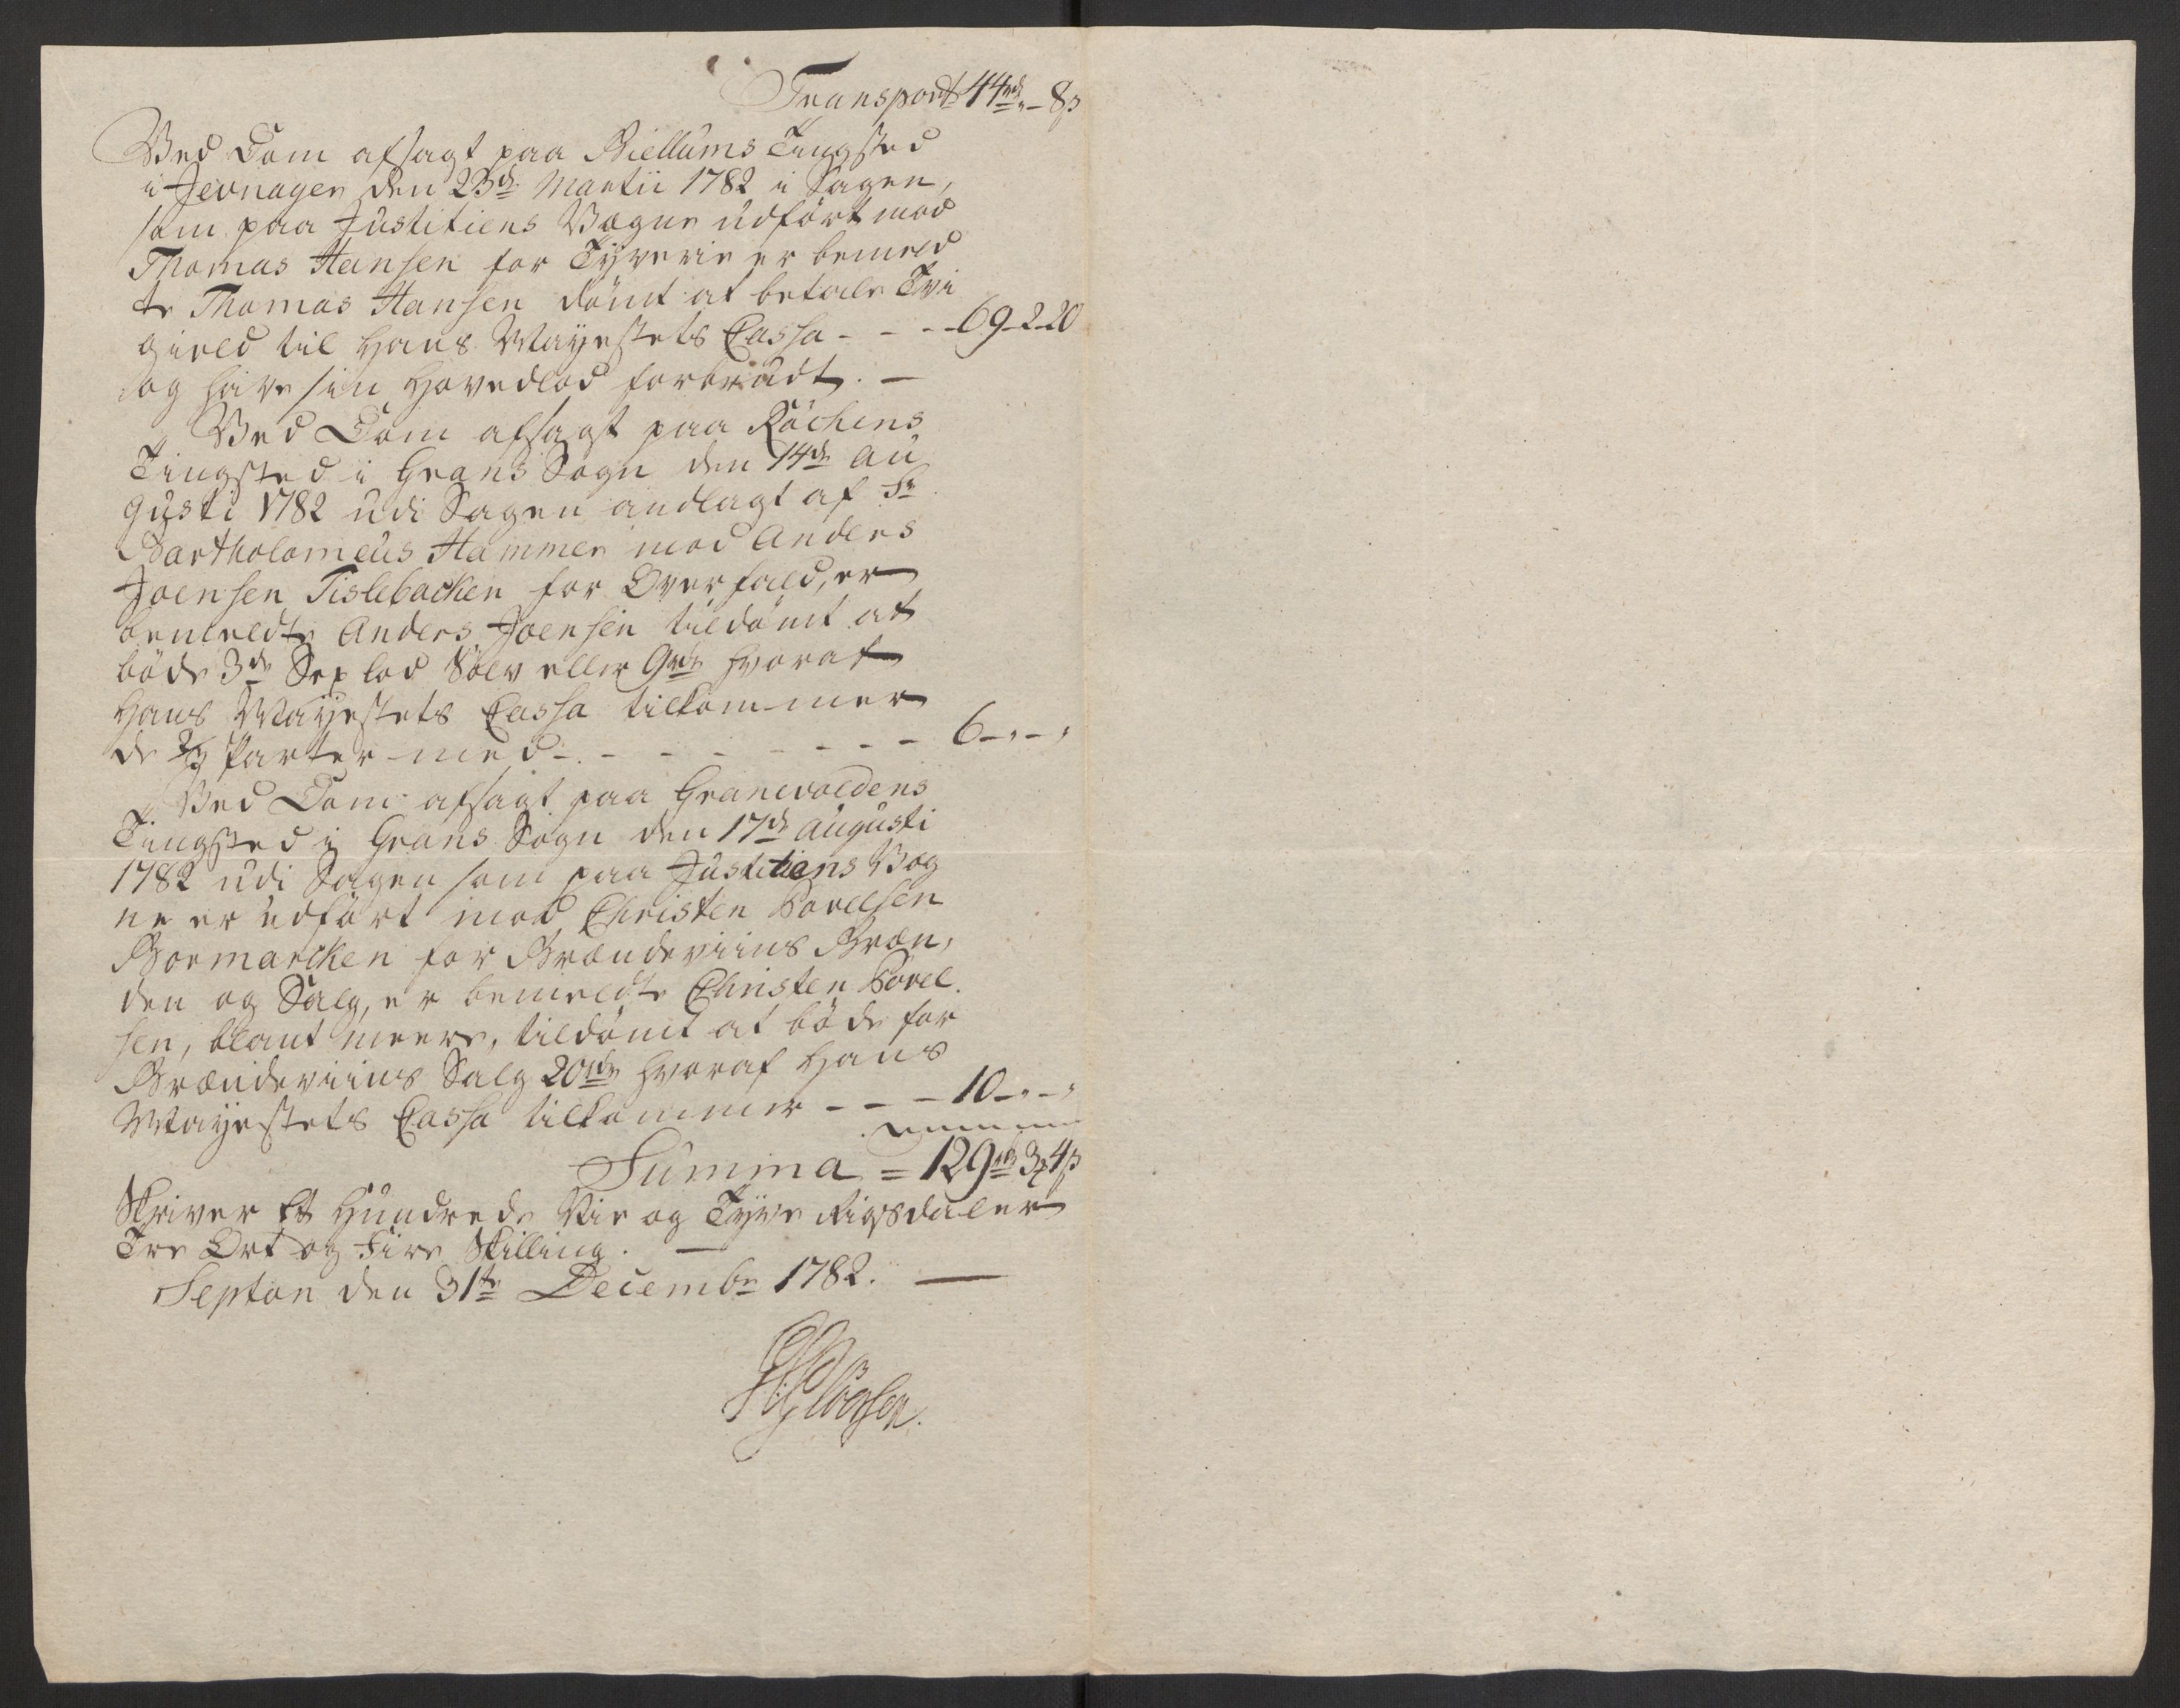 Transport 44rd „ - 8ß
Ved Dom afsagt paa Biellums Tingsted
i Jevnager den 23de Martii 1782 i Sagen,
som paa Justitiens Vegne udfört mod
Thomas Hansen for Tyverie er bemeld
te Thomas Hansen dömt at betale Tvi
gield til Hans Mayestets Cassa - - - 69-2-20
og have sin Hovedlod forbrudt. —
Ved Dom afsagt paa Röchens
Tingsted i Grans Sogn den 14de Au
gusti 1782 udi Sagen andlagt af Sr
Bartholomeus Hammer mod Anders
Joensen Tislebacken for Overfald, er
bemeldte Anders Joensen tildömt at
böde 3de Sex lod Sölv eller 9rdr hvoraf
Hans Mayestets Cassa tilkommer
de 2/3 Parter med - - - - - - - 6-„-„
Ved Dom afsagt paa Granevoldens
Tingsted i Grans Sogn den 17de Augusti
1782 udi Sagen som paa Justitiens Veg
ne er udfört mod Christen Povelsen
Gormarcken for Brændeviins Bræn,
den og Salg, er bemeldte Christen Povel.
sen, blant meere, tildömt at böde for
Brændeviins Salg 20rdr hvoraf Hans
Mayestets Cassa tilkommer - - - 10-„-„
Summa = 129rd 3 4ß
Skriver Et Hundrede Nie og Tyve Rigsdaler
Tre Ort og Fire Skilling. —
Septon den 31te Decembr 1782. —